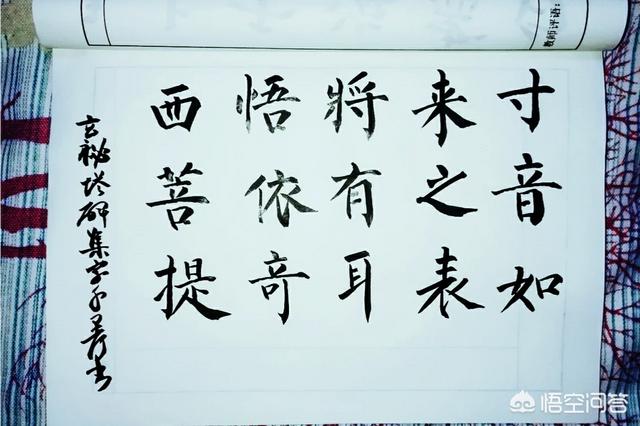 教师评语:
寸音如
来之表
將有耳
悟依奇
西菩提
玄秘塔碑集字
悟空问答